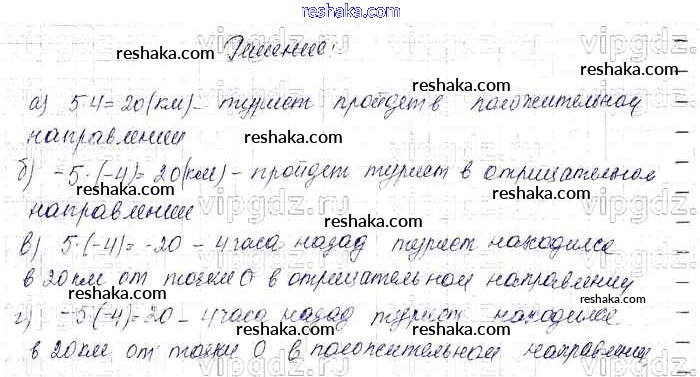 Решение:
а) 5·4=20(км) - турист пройдет в положительном
направлении
б) -5·(-4)=20(км) - пройдет турист в отрицательном
направлении
в) 5·(-4)=-20 - 4 часа назад турист находился
в 20 км от точки О в отрицательном направлении
г) -5·(-4)=20 - 4 часа назад турист находился
в 20 км от точки О в положительном направлении
reshaka.com
reshaka.com
reshaka.com
reshaka.com
reshaka.com
reshaka.com
reshaka.com
reshaka.com
reshaka.com
reshaka.com
reshaka.com
reshaka.com
reshaka.com
reshaka.com